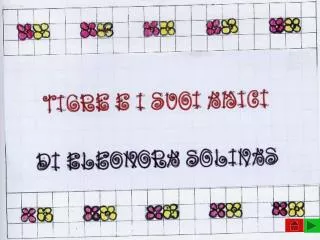 TIGRE E I SUOI AMICI
DI ELEONORA SOLINAS